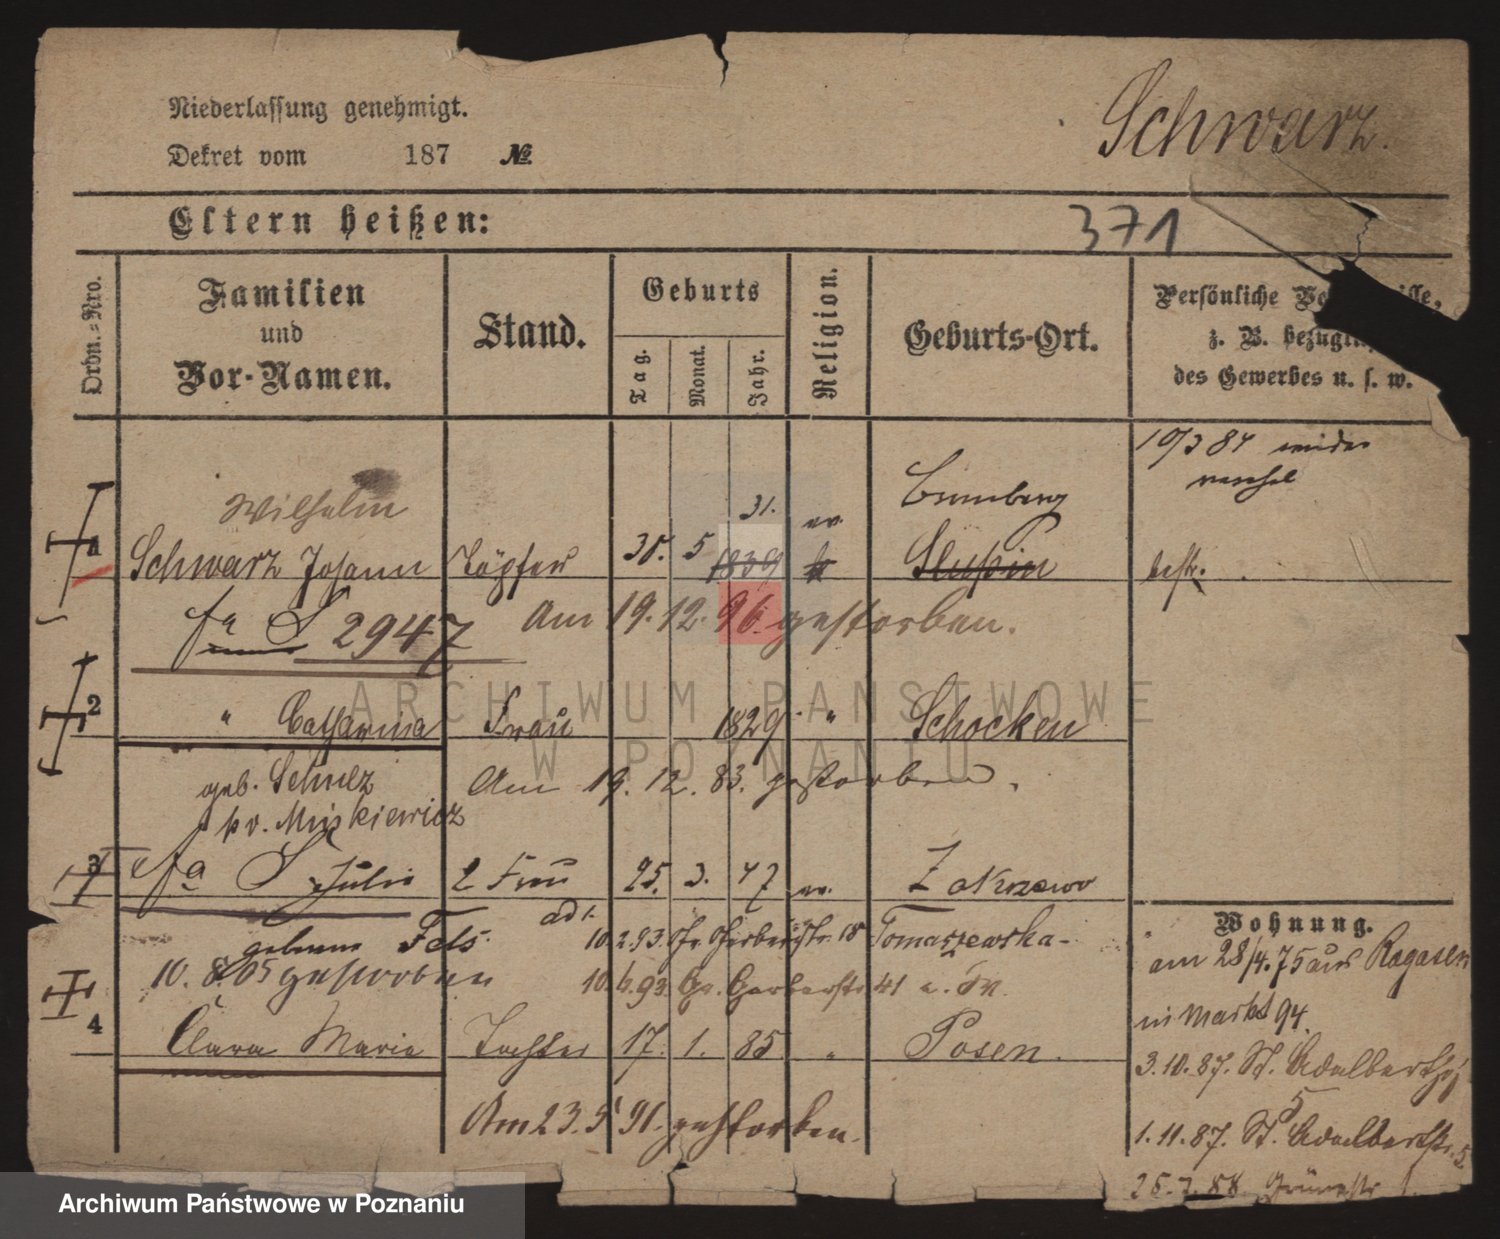 Niederlassung genehmigt.
Dekret vom 187 №
Schwarz.
Eltern heißen:
371
Ordn.-Nro.
Familien
und
Vor-Namen.
Stand.
Geburts
Tag.
Monat.
Jahr.
Religion.
Geburts-Ort.
Persönliche
z. B.
des Gewerbes u. s. w.
10/3 84 wieder
Wilhelm
31.
ev.
Bromberg
1
Schwarz Johann Töpfer 30. 5 1839
2947
Am 19. 12. 96. gestorben.
2
" Catharina Frau 1829 " Schocken
geb. Schulz
Am 19. 12. 83. gestorben.
pv. Miskiewicz
3
Julie 2 Frau 25. 3. 47 ev. Zakrzewo
geborne Fels.
10. 2. 93. 18 Tomaszewska-
10. 8. 05 gestorben
10. 6. 93 Gr. Gerberstr 41
4
Clara Marie Tochter 17. 1. 85 " Posen.
Am 23. 5 91. gestorben.
Wohnung.
am 28/4. 75 aus Rogasen
in Markt 94.
3. 10. 87. St. Adalbertstr
5
1. 11. 87. St. Adalbertstr. 5
25. 7. 88
ARCHIWUM PAŃSTWOWE
W POZNANIU
Archiwum Państwowe w Poznaniu